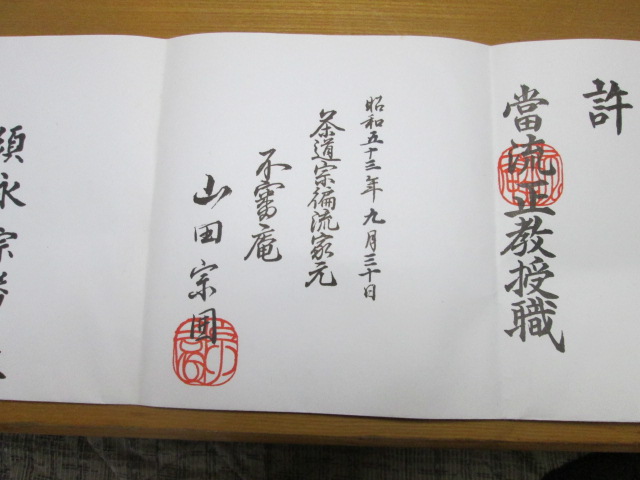 許
當流正教授職
昭和五十三年九月三十日
茶道宗徧流家元
不審庵
山田宗囲
永宗